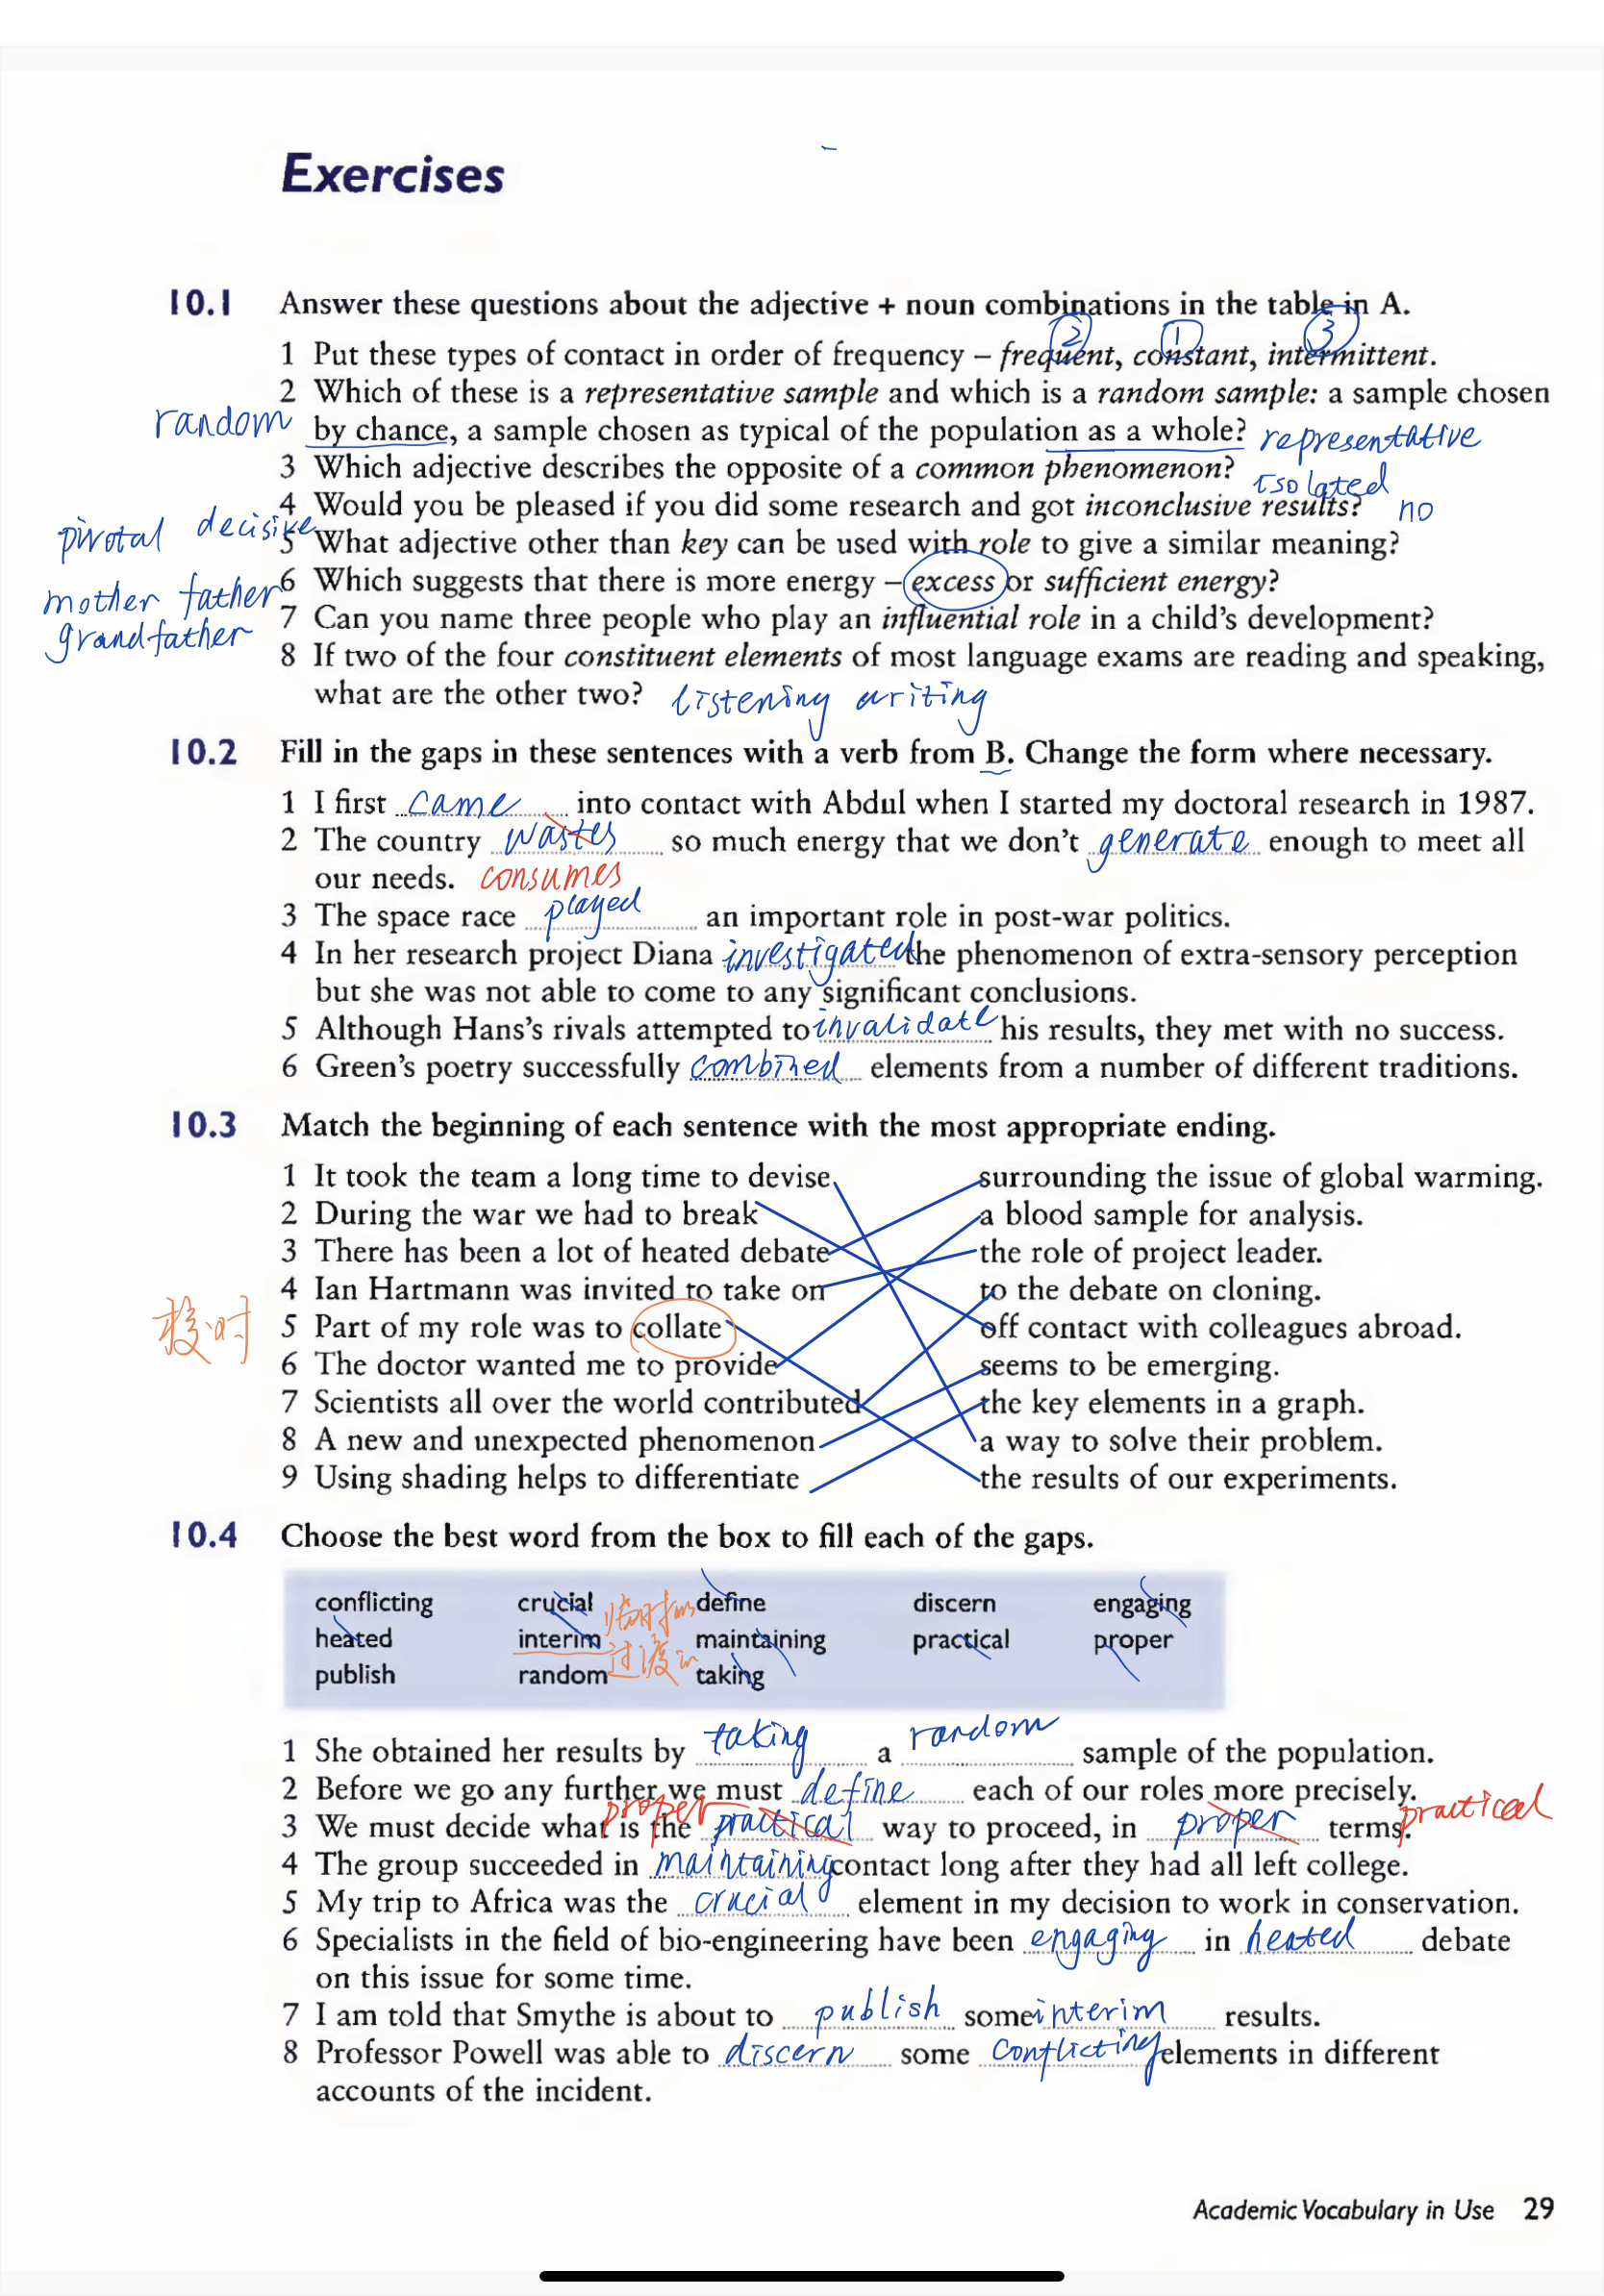 Exercises
10.1 Answer these questions about the adjective + noun combinations in the table in A.
② ① ③
1 Put these types of contact in order of frequency – frequent, constant, intermittent.
2 Which of these is a representative sample and which is a random sample: a sample chosen
random by chance, a sample chosen as typical of the population as a whole? representative
3 Which adjective describes the opposite of a common phenomenon? isolated
4 Would you be pleased if you did some research and got inconclusive results? no
pivotal decisive
5 What adjective other than key can be used with role to give a similar meaning?
6 Which suggests that there is more energy – excess or sufficient energy?
mother father
grandfather
7 Can you name three people who play an influential role in a child's development?
8 If two of the four constituent elements of most language exams are reading and speaking,
what are the other two? listening writing
10.2 Fill in the gaps in these sentences with a verb from B. Change the form where necessary.
1 I first came into contact with Abdul when I started my doctoral research in 1987.
2 The country wastes so much energy that we don't generate enough to meet all
our needs. consumes
3 The space race played an important role in post-war politics.
4 In her research project Diana investigated the phenomenon of extra-sensory perception
but she was not able to come to any significant conclusions.
5 Although Hans's rivals attempted to invalidate his results, they met with no success.
6 Green's poetry successfully combined elements from a number of different traditions.
10.3 Match the beginning of each sentence with the most appropriate ending.
1 It took the team a long time to devise surrounding the issue of global warming.
2 During the war we had to break a blood sample for analysis.
3 There has been a lot of heated debate the role of project leader.
4 Ian Hartmann was invited to take on to the debate on cloning.
5 Part of my role was to collate off contact with colleagues abroad.
6 The doctor wanted me to provide seems to be emerging.
7 Scientists all over the world contributed the key elements in a graph.
8 A new and unexpected phenomenon a way to solve their problem.
9 Using shading helps to differentiate the results of our experiments.
10.4 Choose the best word from the box to fill each of the gaps.
conflicting crucial define discern engaging
heated interim 临时的 maintaining practical proper
publish random 过渡 taking
1 She obtained her results by taking a random sample of the population.
2 Before we go any further we must define each of our roles more precisely.
proper practical
3 We must decide what is the practical way to proceed, in proper terms.
4 The group succeeded in maintaining contact long after they had all left college.
5 My trip to Africa was the crucial element in my decision to work in conservation.
6 Specialists in the field of bio-engineering have been engaging in heated debate
on this issue for some time.
7 I am told that Smythe is about to publish some interim results.
8 Professor Powell was able to discern some conflicting elements in different
accounts of the incident.
Academic Vocabulary in Use 29